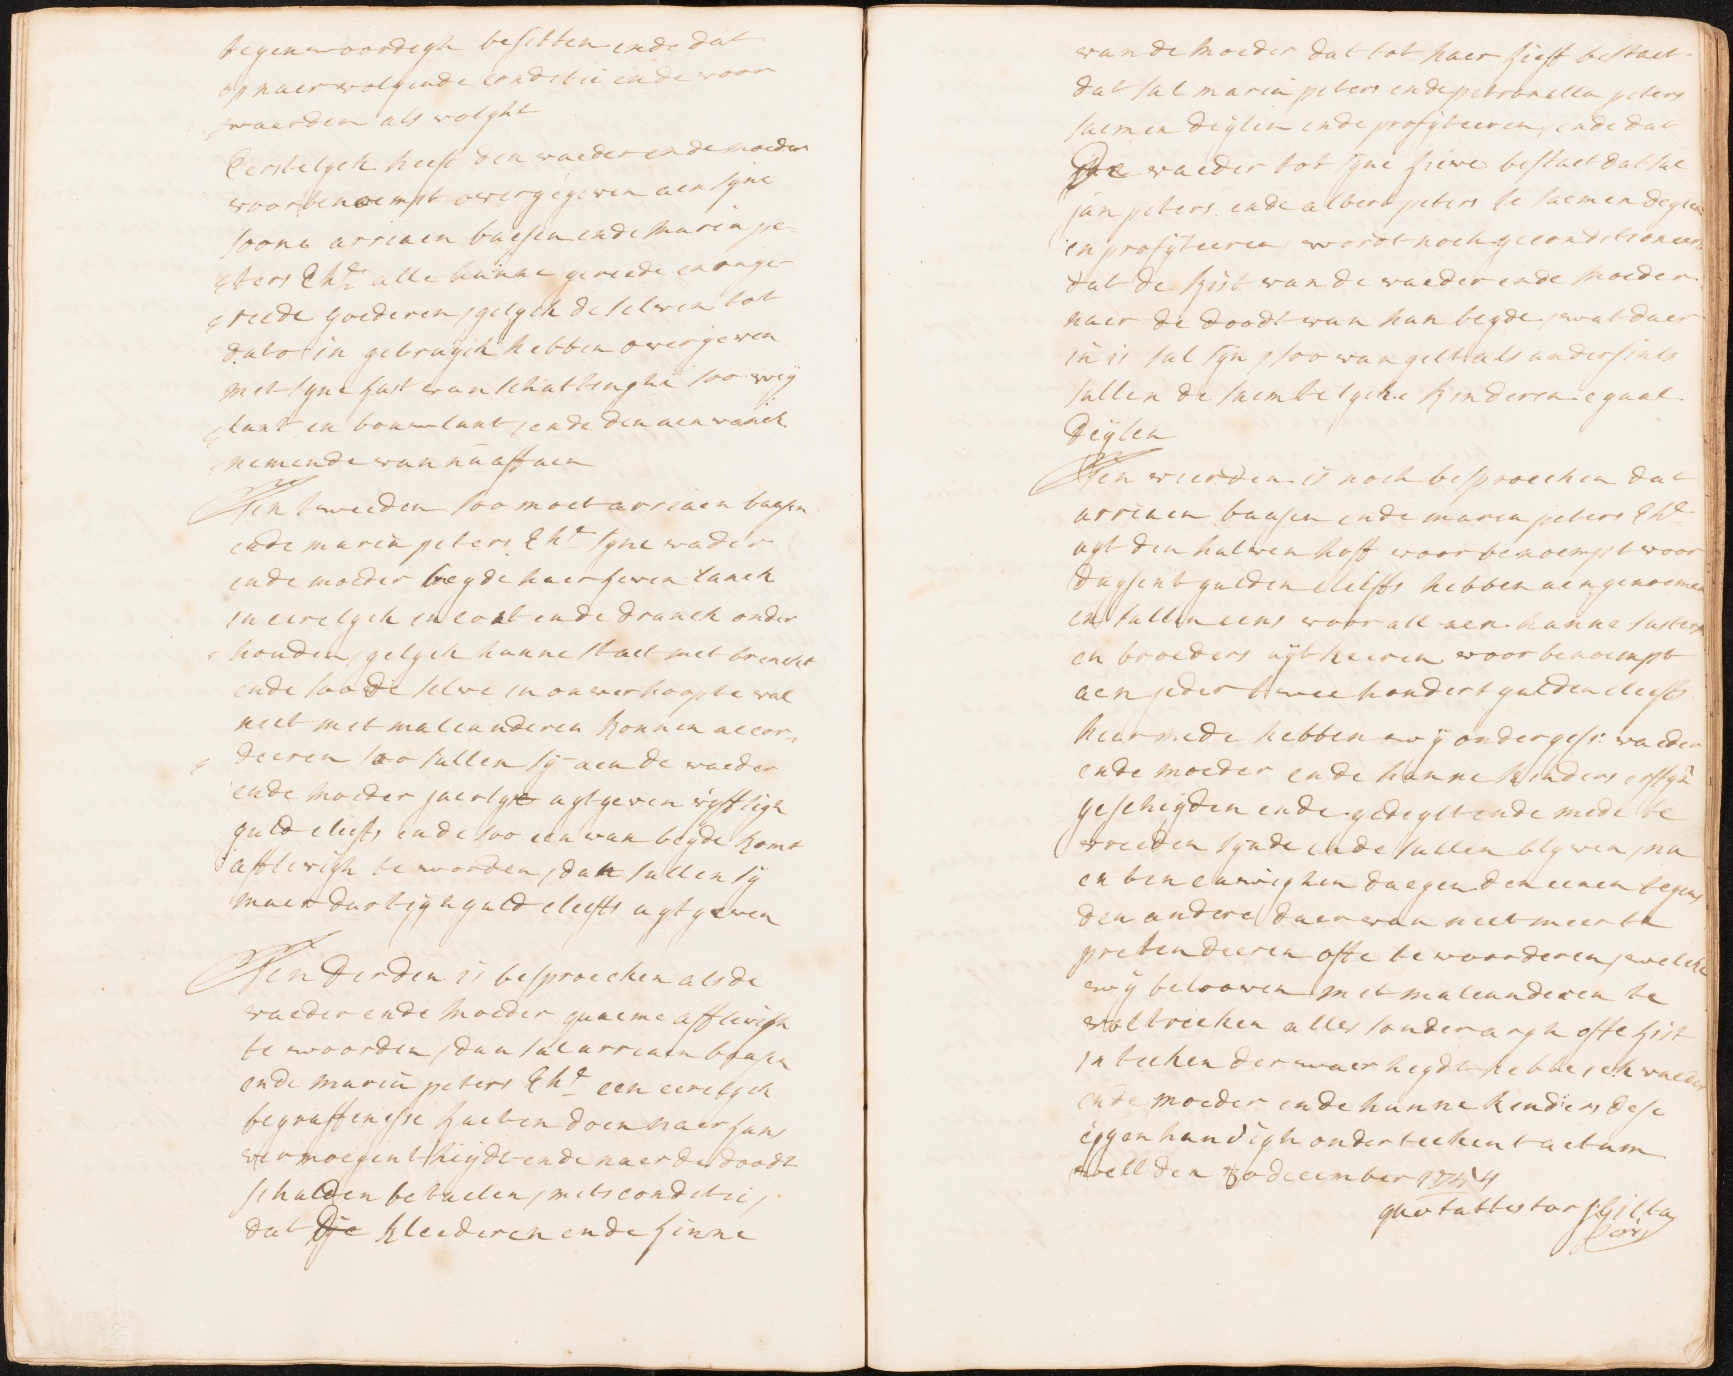 tegenwoordigh besitten ende dat
op naervolgende conditie ende voor
waerden als volght
Eerstelyck heeft den vaeder ende moeder
voorbenoempt overgegeven aen syne
soone arriaen baesen ende maria pe¬
ters Ehl alle hunne gereede en onge¬
reede goederen, gelyck de selven tot
dato in gebruyck hebben overgeven
met syne last van schattinghe soo wey
lant en bouwlant, ende den aenvanck
nemende van nu aff aen
Ten tweeden soo moet arriaen baesen
ende maria peters Ehl syne vader
ende moeder beyde haer leven lanck
in eerelyck en cost ende dranck onder
houden, gelyck hunne staet met brenckt
ende soo de selve in onverhoopte val
niet met malcanderen konnen accor¬
deeren soo sullen sy aen de vaeder
ende moeder jaerlyx uytgeven vyfftigh
guld cleefs ende soo een van beyde komt
afflevigh te worden, dan sullen sy
maer dartigh guld cleefs uytgeven
Ten derden is besproecken als de
vaeder ende moeder quaeme afflevigh
te woorden, dan sal arriaen baesen
ende maria peters Ehl een eerelyck
begraffenisse laeten doen naer luns
vermoegentheydt ende naer de doodt
schulden betaelen, mits conditie,
dat die kleederen ende linne
van de moeder dat tot haer lieff bestaet
dat sal maria peters ende petronella peters
saemen deylen ende profyteeren, ende dat
de vaeder tot syne lieve bestaet dat sal
jan peters ende albert peters te saemen deylen
en profyteeren, wordt noch geconditioneert
dat de kist van de vaeder ende moeder
naer de doodt van hun beyde, wat daer
in is sal syn, soo van gelt als andersints
sullen de saementelycke kinderen egaal
deylen
Ten vierden is noch besproecken dat
arriaen baasen ende maria peters Ehl
uyt den halven hoff voorbenoempt voor
duysent gulden cleeffs hebben aengenoemen
en sullen eens voor all aen hunne susters
en broeders uytkeeren voorbenoempt
aen jeder twee hondert gulden cleefs
hear mede hebben wy ondergess: vaeder
ende moeder ende hunne kinders erffgn
gescheyden ende gedeylt ende mede te
vreeden synde ende sullen blyven, nu
en ten euwighen daegen den eenen tegens
den andere daer van niet meer te
pretendeeren ofte te voorderen, welcke
wy belooven met malcanderen te
voltrecken alles sonder argh offe list
in teeken der waerheydt hebbe ick vaeder
ende moeder ende hunne kenders dese
eygenhandigh onderteekent actum
well den 30 december 1744
quod attestor